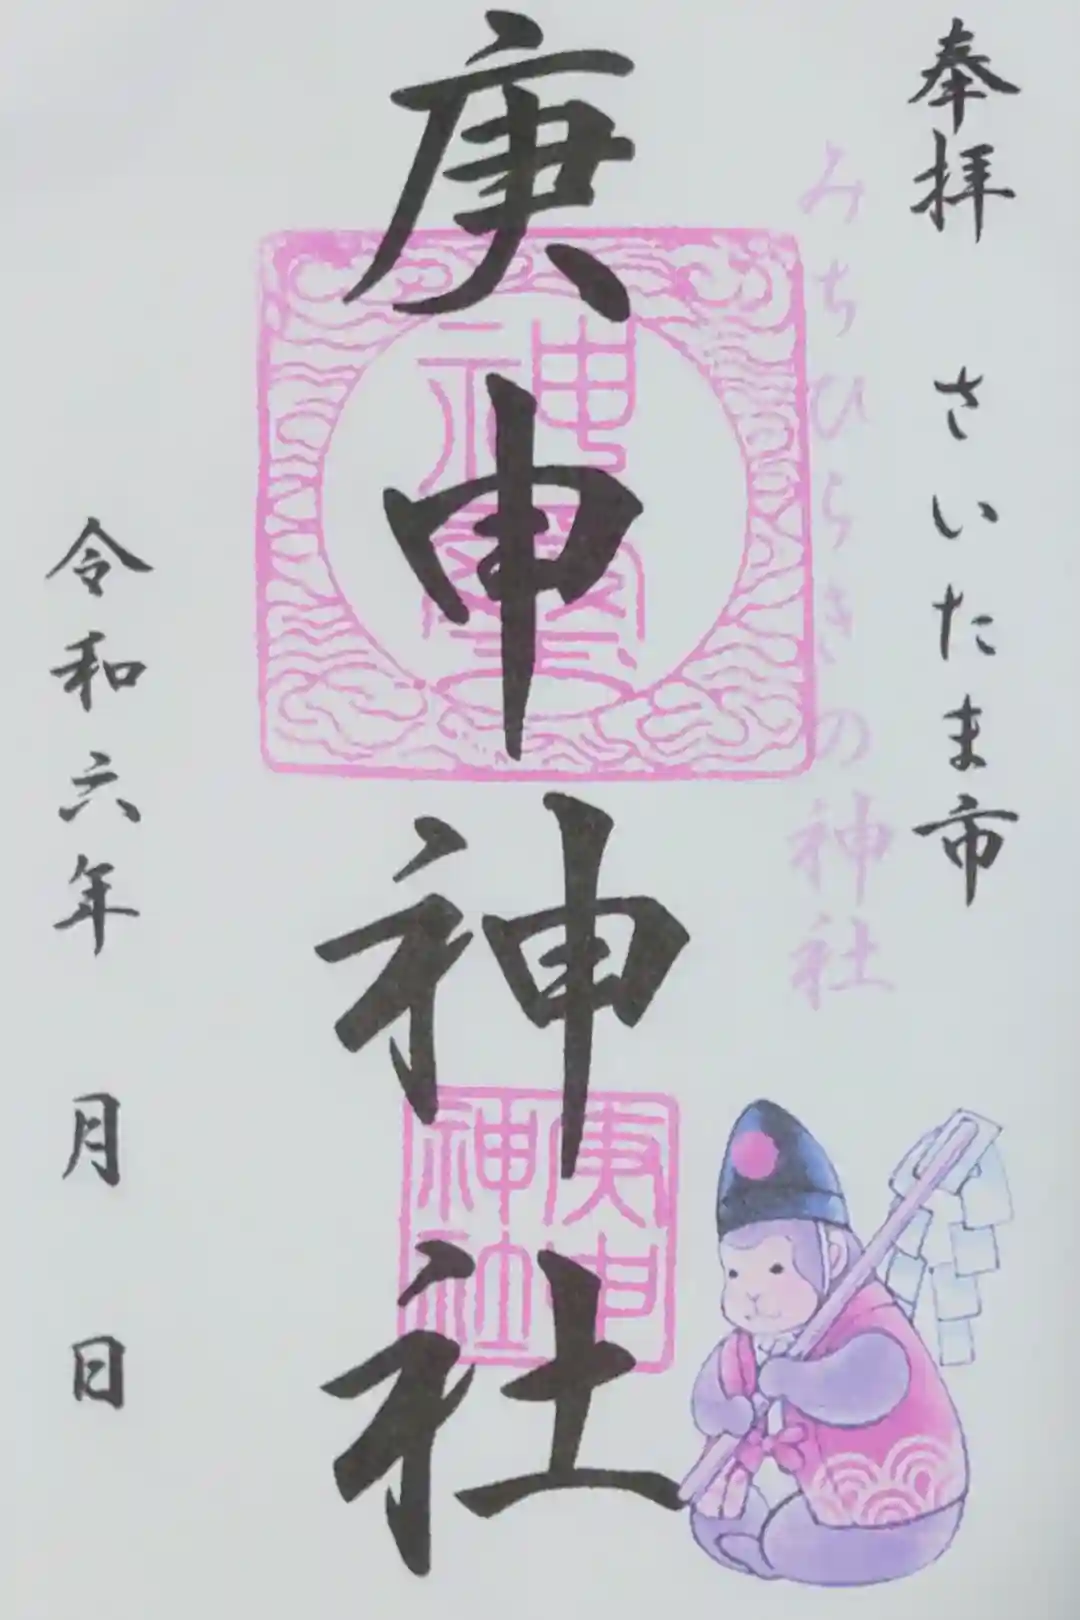 奉拝　さいたま市
みちひらきの神社
庚申神社
神璽
庚申
神社
令和六年　月　日